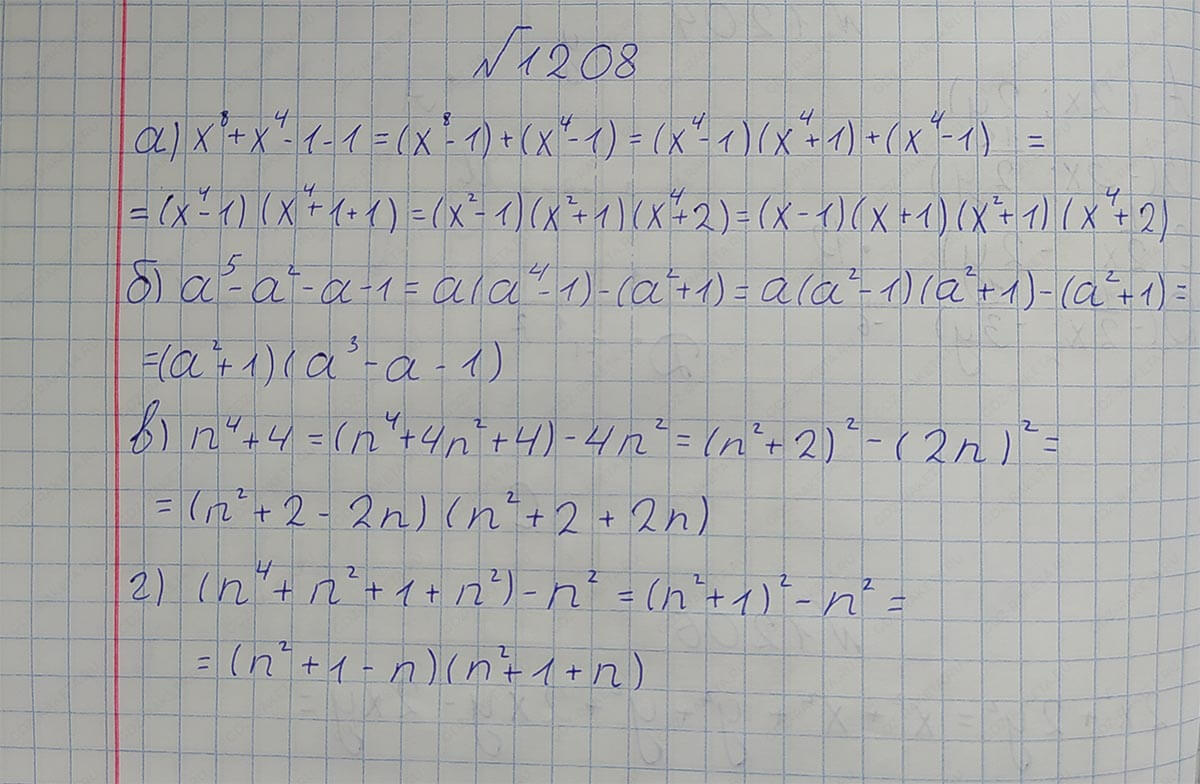 √1208
а) x⁸+x⁴-1-1=(x⁸-1)+(x⁴-1)=(x⁴-1)(x⁴+1)+(x⁴-1) =
=(x⁴-1)(x⁴+1+1)=(x²-1)(x²+1)(x⁴+2)=(x-1)(x+1)(x²+1)(x⁴+2)
б) a⁵-a²-a-1=a(a⁴-1)-(a²+1)=a(a²-1)(a²+1)-(a²+1)=
=(a²+1)(a³-a-1)
в) n⁴+4=(n⁴+4n²+4)-4n²=(n²+2)²-(2n)²=
=(n²+2-2n)(n²+2+2n)
г) (n⁴+n²+1+n²)-n²=(n²+1)²-n²=
=(n²+1-n)(n²+1+n)